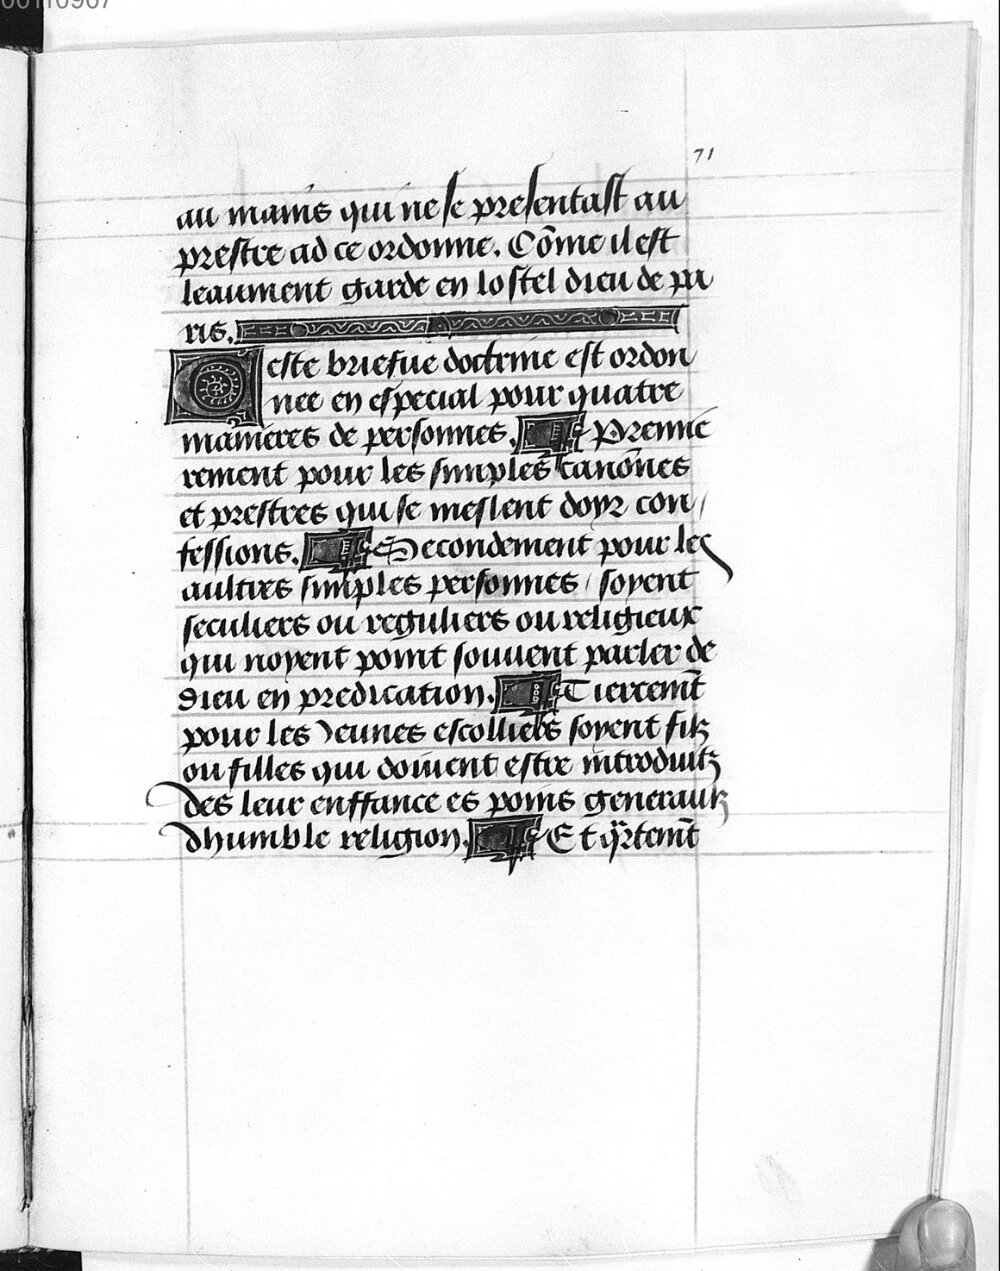 71
au mains qui ne se presentast au
prestre ad ce ordonne. Cōme il est
leaument garde en lostel dieu de pa
ris.
Ceste briefue doctrine est ordon
nee en especial pour quatre
manieres de personnes. Premie
rement pour les simples canōnes
et prestres qui se meslent doyr con/
fessions. Secondement pour les
aultres simples personnes / soyent
seculiers ou reguliers ou religieux
qui noyent point souuent parler de
dieu en predication. Tiercemēt
pour les Jeunes escolliers soyent filz
ou filles qui doiuent estre introduitz
des leur enffance es poins generaulx
dhumble religion. Et q̄rtemēt